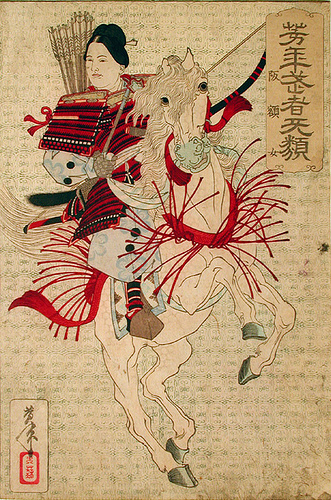 芳年武者无類
阪額女
芳年